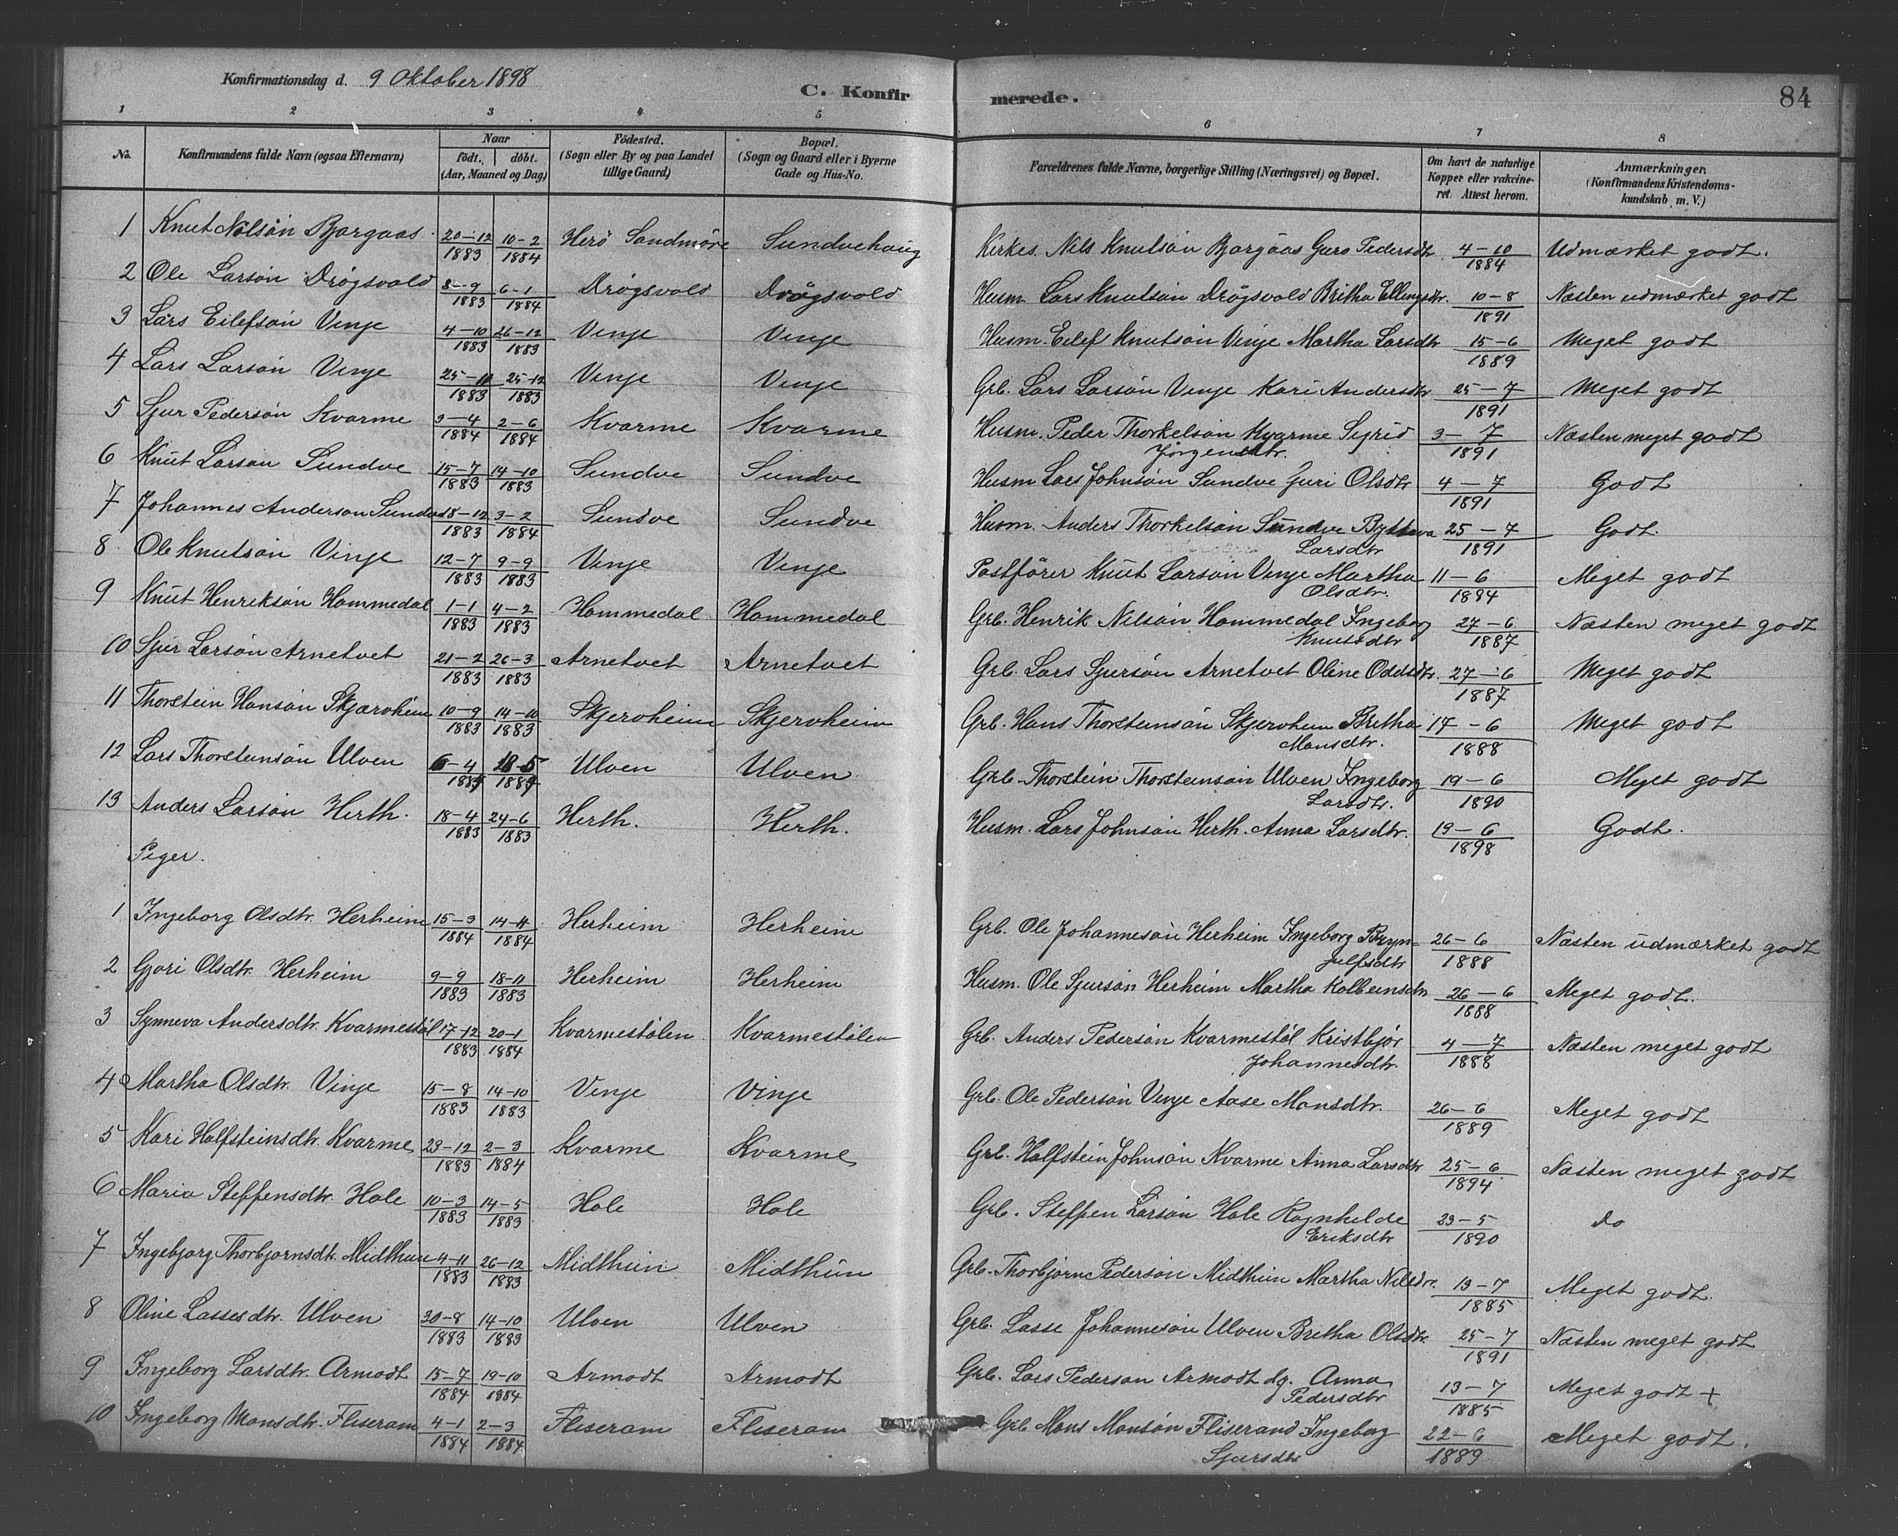 Konfirmationsdag d. 9 Oktober 1898
C. Konfirmerede. 84
1 2 3 4 5 6 7 8
No. Konfirmandens fulde Navn (ogsaa Efternavn) Naar født, døbt. (Aar, Maaned og Dag) Fødested. (Sogn eller By og paa Landet tillige Gaard) Bopæl. (Sogn og Gaard eller i Byerne Gade og Hus-No. Forældrenes fulde Navne, borgerlige Stilling (Næringsvei) og Bopæl. Om havt de naturlige Kopper eller vakcineret. Attest herom. Anmærkninger. (Konfirmandens Kristendomskundskab m. V.)
1 Knut Nilsøn Bjorgaas 20-12 1883 10-2 1884 Herø Søndmøre Sundvehaug Kirkes. Nils Knutsøn Bjorgaas Guro Pedersdtr 4-10 1884 Udmærket godt.
2 Ole Larsøn Drøgsvold 8-9 1883 6-1 1884 Drøgsvold Drøgsvold Husm Lars Knutsøn Drøgsvold Britha Ellingsdtr. 10-8 1891 Næsten udmærket godt
3 Lars Eilefsøn Vinje 4-10 1883 26-12 1883 Vinje Vinje Husm. Eilef Knutsøn Vinje Martha Larsdtr 15-6 1889 Meget godt
4 Lars Larsøn Vinje 25-11 1883 25-12 1883 Vinje Vinje Grb. Lars Larsøn Vinje Kari Andersdtr 25-7 1891 Meget godt
5 Sjur Pedersøn Kvarme 3-4 1884 2-6 1884 Kvarme Kvarme Husm. Peder Thorkelsøn Kvarme Sigrid Jørgensdtr. 3-7 1891 Næsten meget godt
6 Knut Larsøn Sundve 15-7 1883 14-10 1883 Sundve Sundve Husm Lars Johnsøn Sundve Guri Olsdtr 4-7 1891 Godt
7 Johannes Andersøn Sundve 18-12 1883 3-2 1884 Sundve Sundve Husm. Anders Thorkelsøn Sundve Larsdtr 25-7 1891 Godt.
8 Ole Knutsøn Vinje 12-7 1883 9-9 1883 Vinje Vinje Postfører Knut Larsøn Vinje Martha Olsdtr. 11-6 1894 Meget godt
9 Knut Henriksøn Hommedal 1-1 1883 4-2 1883 Hommedal Hommedal Grb. Henrik Nilsøn Hommedal Ingeborg Knutsdtr 27-6 1887 Næsten meget godt
10 Sjur Larsøn Arnetvet 21-2 1883 26-3 1883 Arnetvet Arnetvet Grb. Lars Sjursøn Arnetvet Oline Oddsdtr. 27-6 1887 Meget godt
11 Thorstein Hansøn Skjærvheim 10-9 1883 14-10 1883 Skjervheim Skjervheim Grb. Hans Thorsteinsøn Skjervheim Britha Monsdtr. 14-6 1888 Meget godt
12 Lars Thorsteinsøn Ulven 6-4 1884 18-5 1884 Ulven Ulven Grb. Thorstein Thorsteinsøn Ulven Ingeborg Larsdtr. 19-6 1890 Meget godt
13 Anders Larsøn Herth. 18-4 1883 24-6 1883 Herth. Herth. Husm. Lars Johnsøn Herth. Anna Larsdtr. 19-6 1898 Godt.
Piger.
1 Ingeborg Olsdtr. Herheim 15-3 1884 14-4 1884 Herheim Herheim Grb. Ole Johannesøn Herheim Ingeborg Brynjulfsdtr 26-6 1888 Næsten udmærket godt
2 Gjøri Olsdtr. Herheim 9-9 1883 18-11 1883 Herheim Herheim Husm. Ole Sjursøn Herheim Martha Kolbeinsdtr 26-6 1888 Meget godt.
3 Synneva Andersdtr. Kvarmestøl 17-12 1883 20-1 1884 Kvarmestølen Kvarmestølen Grb. Anders Pedersøn Kvarmestøl Kristbjør Johannesdtr. 4-7 1888 Næsten meget godt
4 Martha Olsdtr. Vinje 15-8 1883 14-10 1883 Vinje Vinje Grb. Ole Pedersøn Vinje Aase Monsdtr. 26-6 1889 Meget godt
5 Kari Halfsteinsdtr. Kvarme 23-12 1883 2-3 1884 Kvarme Kvarme Grb. Halfstein Johnsøn Kvarme Anna Larsdtr 25-6 1894 Næsten meget godt
6 Maria Steffensdtr. Hole 10-3 1883 14-5 1883 Hole Hole Grb. Steffen Larsøn Hole Ragnhilde Eriksdtr 23-5 1890 do
7 Ingebjorg Thorbjornsdtr. Midthun 4-11 1883 26-12 1883 Midthun Midthun Grb. Thorbjorn Pedersøn Midthun Martha Nilsdtr. 13-7 1885 Meget godt.
8 Oline Lassesdtr. Ulven 30-8 1883 14-10 1883 Ulven Ulven Grb. Lasse Johannesøn Ulven Britha Olsdtr. 25-7 1891 Næsten meget godt
9 Ingeborg Larsdtr. Armodt 15-7 1884 19-10 1884 Armodt Armodt Grb. Lars Pedersøn Armodt og Anna Pedersdtr 13-7 1885 Meget godt +
10 Ingeborg Monsdtr. Fliseram 4-1 1884 2-3 1884 Fliseram Fliseram Grb Mons Monsøn Fliserand Ingeborg Sjursdtr 22-6 1889 Meget godt.